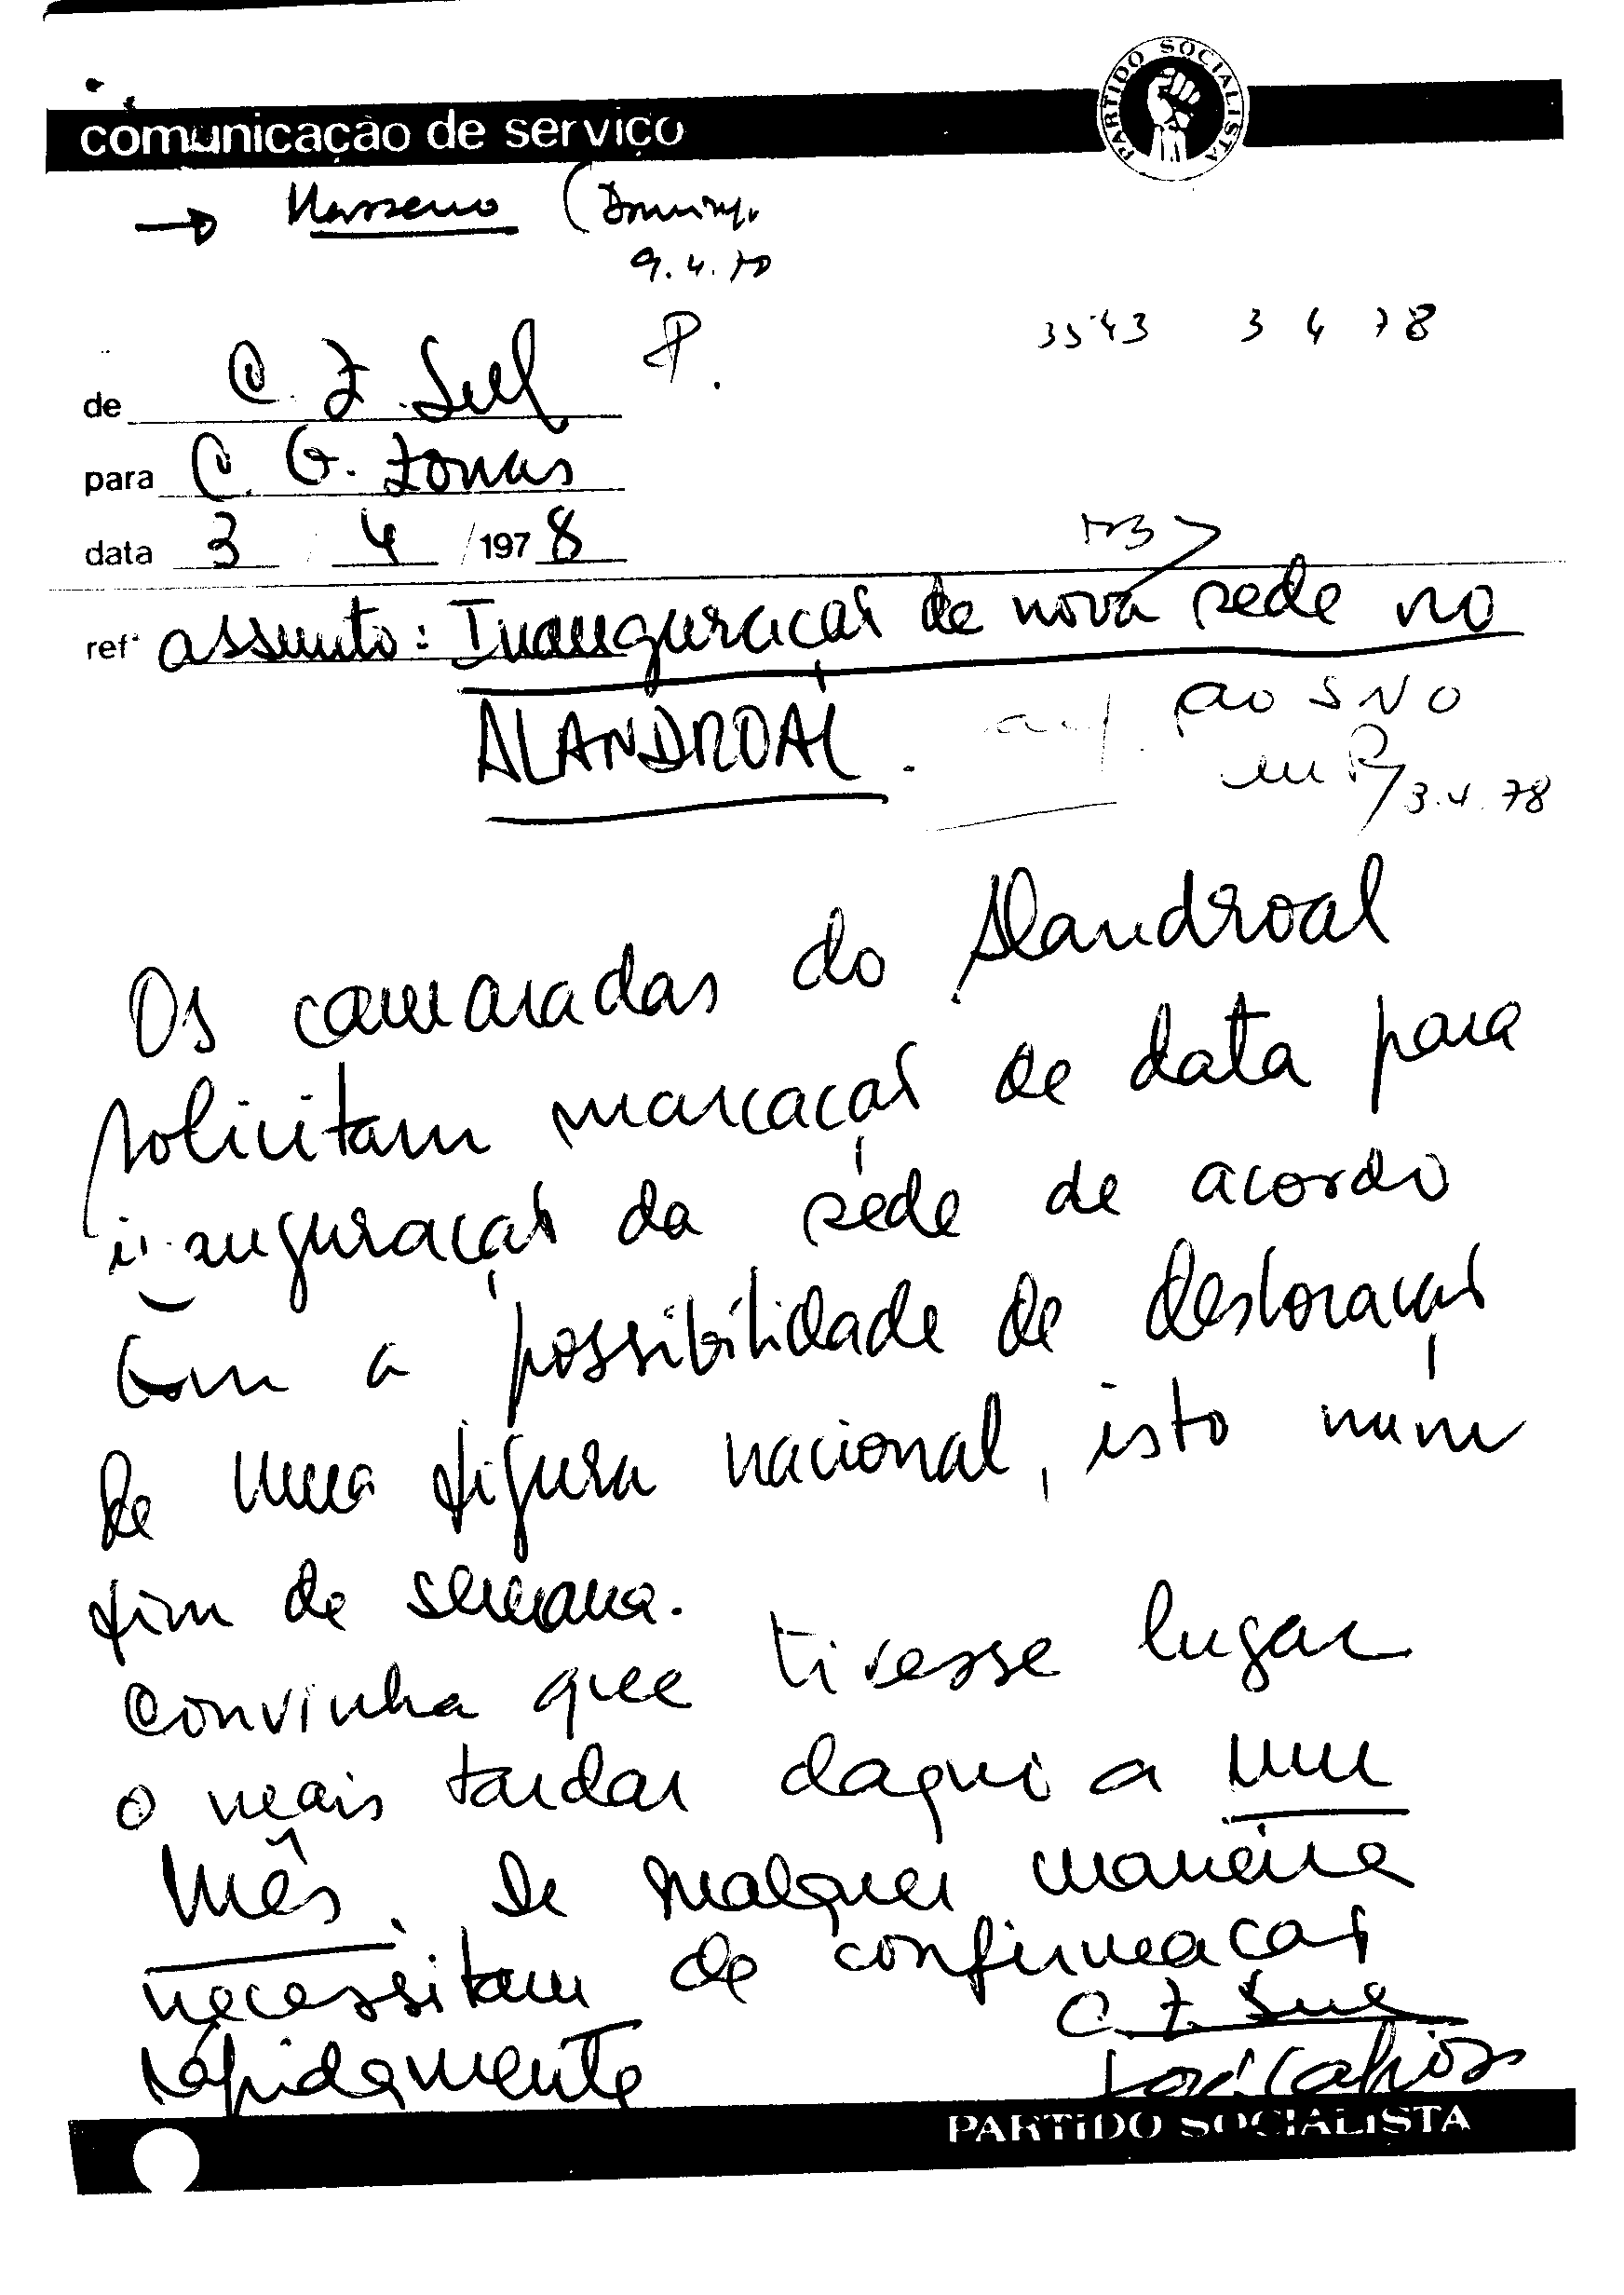 PARTIDO SOCIALISTA
comunicação de serviço
→ Masseno (Doming.
9.4.78
P.
3543 3 4 78
de C. Z. Sul
para C. G. Zonas
data 3 / 4 / 1978
refª assunto: Inauguração de nova sede no
ALANDROAL.
ao SNO
em 3.4.78
Os camaradas do Alandroal
solicitam marcação de data para
inauguração da sede de acordo
com a possibilidade de deslocação
de uma figura nacional, isto num
fim de semana.
Convinha que tivesse lugar
o mais tardar daqui a um
mês. De qualquer maneira
necessitam de confirmação
rápidamente
C. Z. Sul
PARTIDO SOCIALISTA